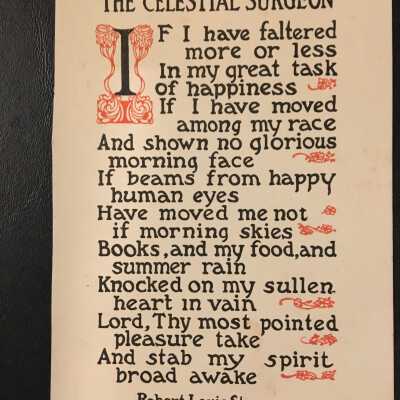 THE CELESTIAL SURGEON
IF I have faltered
more or less
In my great task
of happiness
If I have moved
among my race
And shown no glorious
morning face
If beams from happy
human eyes
Have moved me not
if morning skies
Books, and my food, and
summer rain
Knocked on my sullen
heart in vain
Lord, Thy most pointed
pleasure take
And stab my spirit
broad awake
Robert Louis